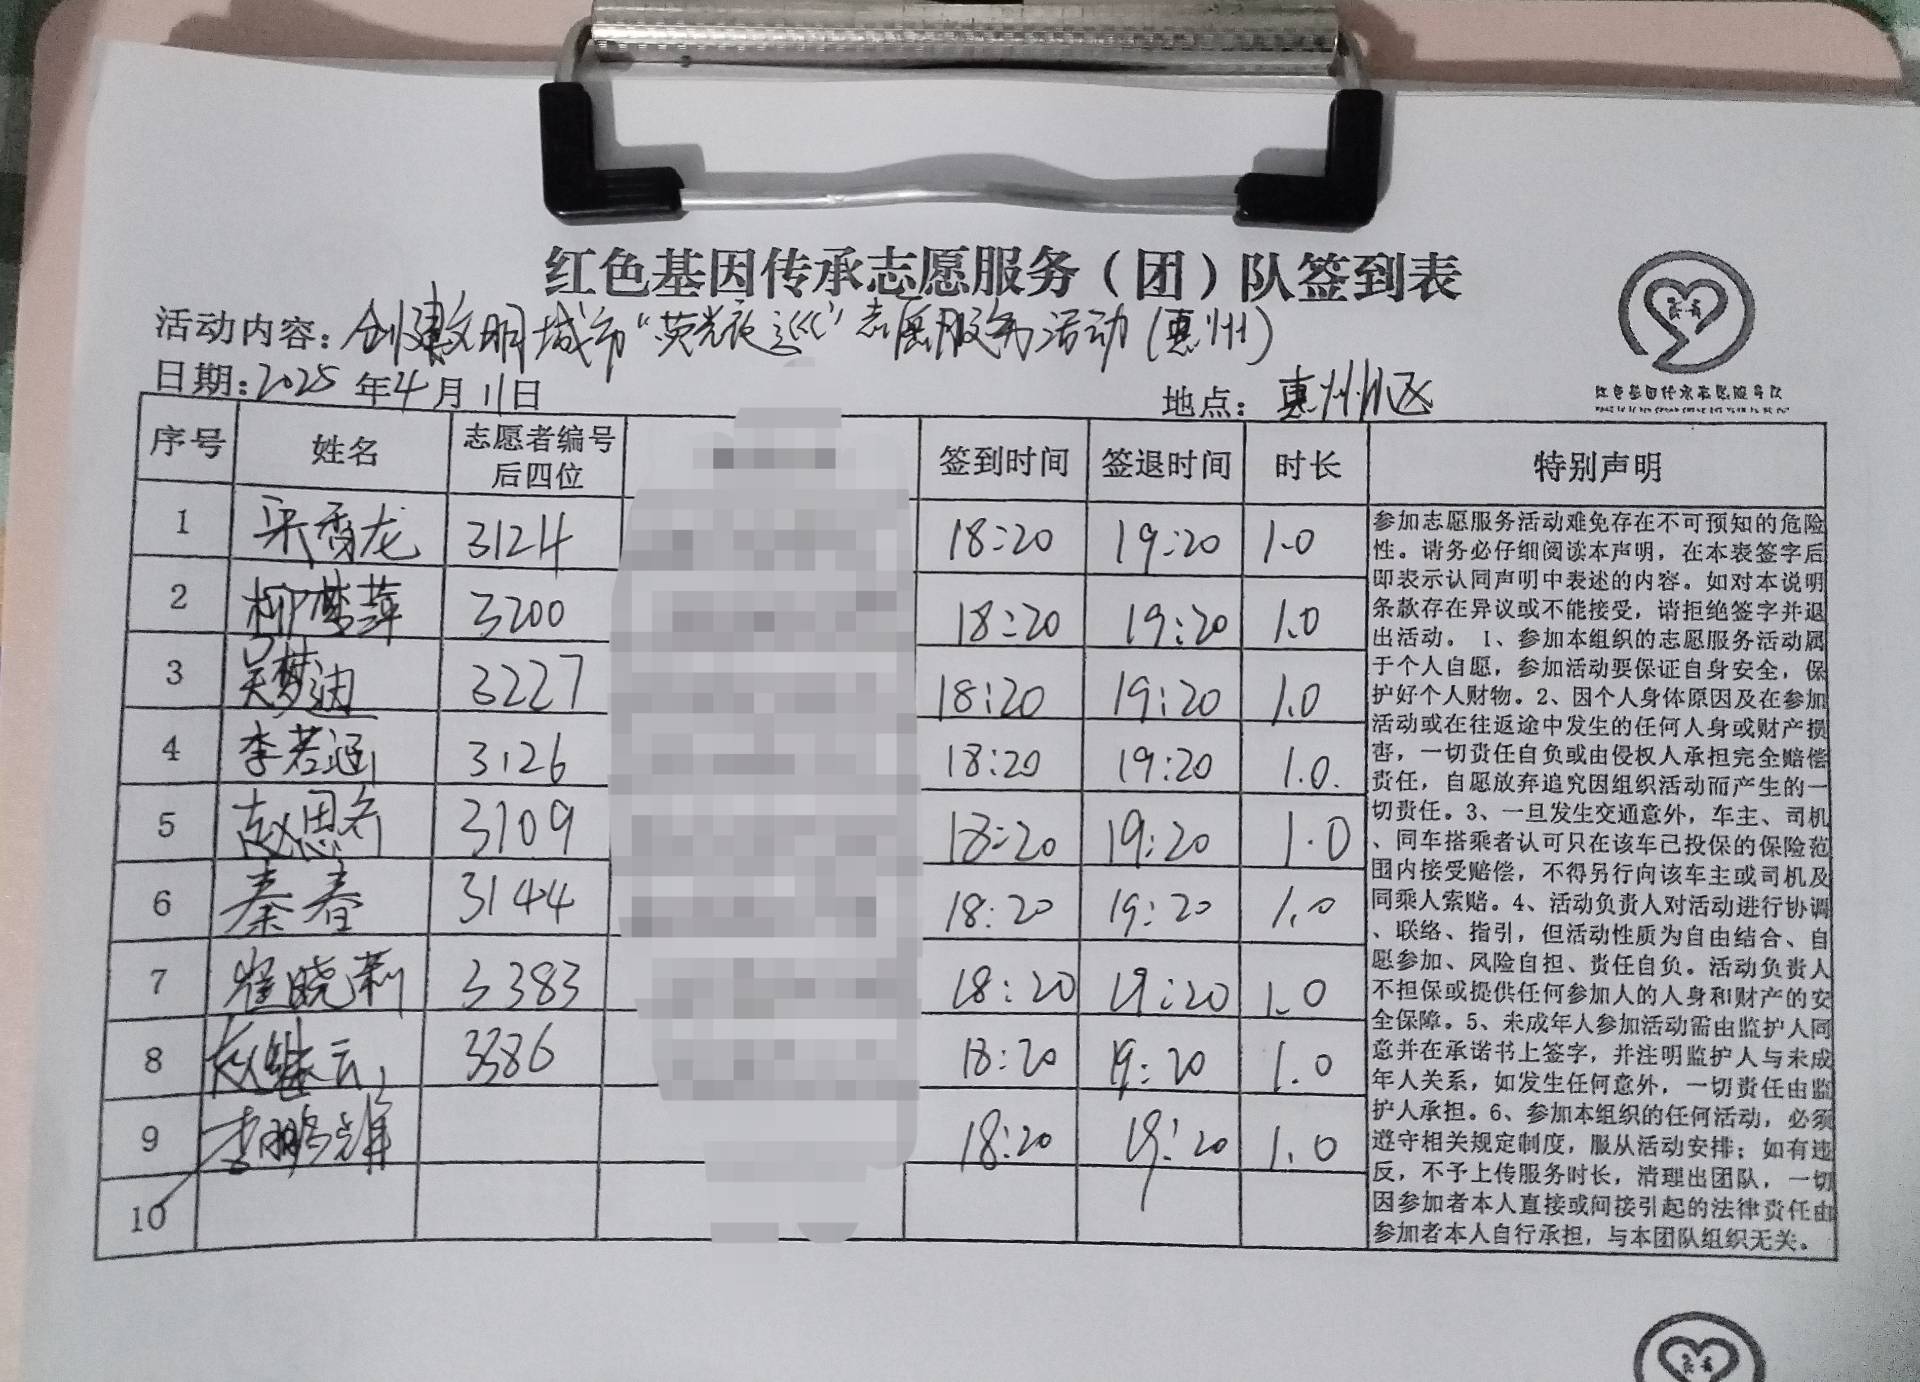 红色基因传承志愿服务（团）队签到表
活动内容：创建文明城市“荧光夜巡”志愿服务活动（惠州）
日期：2025年4月11日 地点：惠州
序号 姓名 志愿者编号后四位 签到时间 签退时间 时长 特别声明
1 3124 18:20 19:20 1.0
2 柳梦萍 3200 18:20 19:20 1.0
3 吴梦迪 3227 18:20 19:20 1.0
4 李若涵 3126 18:20 19:20 1.0.
5 赵思 3109 18:20 19:20 1.0
6 秦春 3144 18:20 19:20 1.0
7 崔晓莉 3383 18:20 19:20 1.0
8 继云 3386 18:20 19:20 1.0
9 李鹏 18:20 19:20 1.0
10
参加志愿服务活动难免存在不可预知的危险
性。请务必仔细阅读本声明，在本表签字后
即表示认同声明中表述的内容。如对本说明
条款存在异议或不能接受，请拒绝签字并退
出活动。 1、参加本组织的志愿服务活动属
于个人自愿，参加活动要保证自身安全，保
护好个人财物。2、因个人身体原因及在参加
活动或在往返途中发生的任何人身或财产损
害，一切责任自负或由侵权人承担完全赔偿
责任，自愿放弃追究因组织活动而产生的一
切责任。3、一旦发生交通意外，车主、司机
、同车搭乘者认可只在该车已投保的保险范
围内接受赔偿，不得另行向该车主或司机及
同乘人索赔。4、活动负责人对活动进行协调
、联络、指引，但活动性质为自由结合、自
愿参加、风险自担、责任自负。活动负责人
不担保或提供任何参加人的人身和财产的安
全保障。5、未成年人参加活动需由监护人同
意并在承诺书上签字，并注明监护人与未成
年人关系，如发生任何意外，一切责任由监
护人承担。6、参加本组织的任何活动，必须
遵守相关规定制度，服从活动安排；如有违
反，不予上传服务时长，清理出团队，一切
因参加者本人直接或间接引起的法律责任由
参加者本人自行承担，与本团队组织无关。
红色基因传承志愿服务队